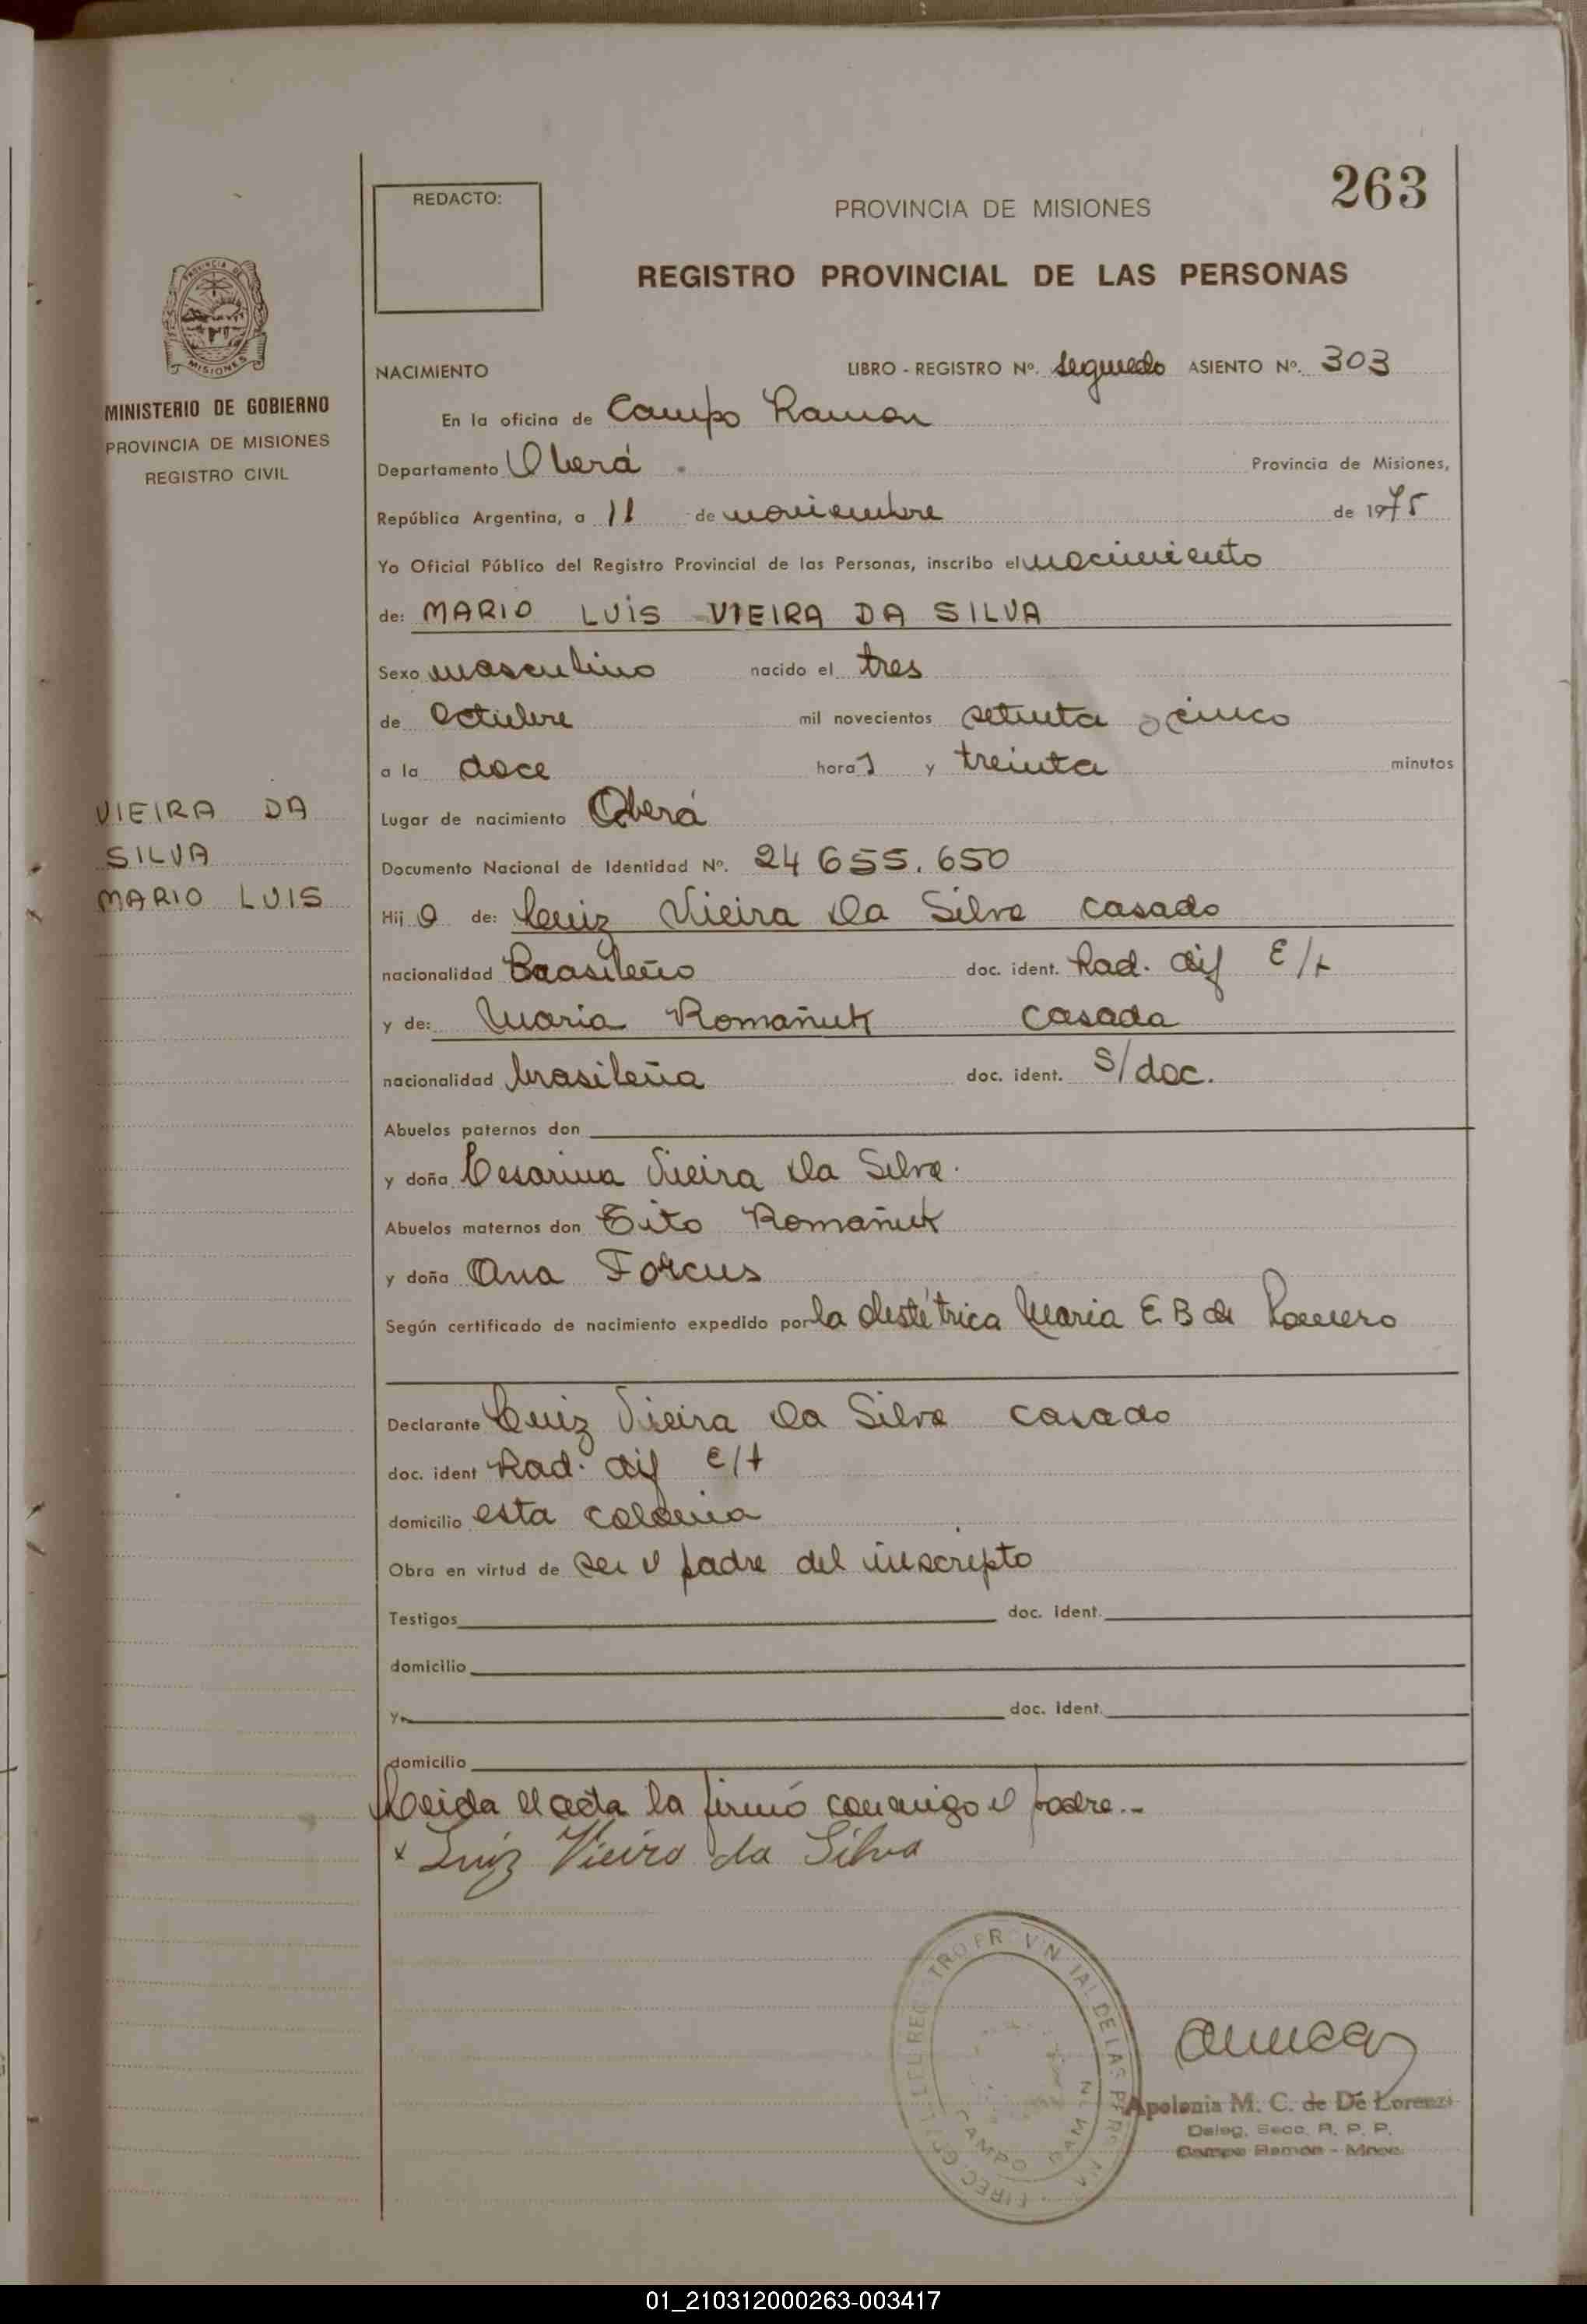 263
REDACTO:
PROVINCIA DE MISIONES
REGISTRO PROVINCIAL DE LAS PERSONAS
MINISTERIO DE GOBIERNO
PROVINCIA DE MISIONES
REGISTRO CIVIL
NACIMIENTO LIBRO - REGISTRO Nº. segundo ASIENTO Nº. 303
En la oficina de Campo Ramon
Departamento Oberá Provincia de Misiones,
República Argentina, a 11 de noviembre de 1975
Yo Oficial Público del Registro Provincial de las Personas, inscribo el nacimiento
de: MARIO LUIS VIEIRA DA SILVA
Sexo masculino nacido el tres
de Octubre mil novecientos setenta y cinco
a la doce horas y treinta minutos
VIEIRA DA
SILVA
MARIO LUIS
Lugar de nacimiento Oberá
Documento Nacional de Identidad Nº. 24 655.650
Hijo de: Luiz Vieira Da Silva casado
nacionalidad Brasileño doc. ident. Rad. dif E/t
y de: Maria Romañuk casada
nacionalidad brasileña doc. ident. S/doc.
Abuelos paternos don
y doña Cesarina Vieira Da Silva.
Abuelos maternos don Tito Romañuk
y doña Ana Forcus
Según certificado de nacimiento expedido por la obstétrica Maria E B de Romero
Declarante Luiz Vieira Da Silva casado
doc. ident Rad. dif E/t
domicilio esta colonia
Obra en virtud de ser el padre del inscripto
Testigos doc. ident.
domicilio
y doc. ident.
domicilio
Leida el acta la firmó conmigo el padre.-
x Luiz Vieira da Silva
Apolonia M. C. de De Lorenzi
Deleg. Secc. R. P. P.
Campo Ramon - Mnes.
CAMPO RAMON
01_210312000263-003417